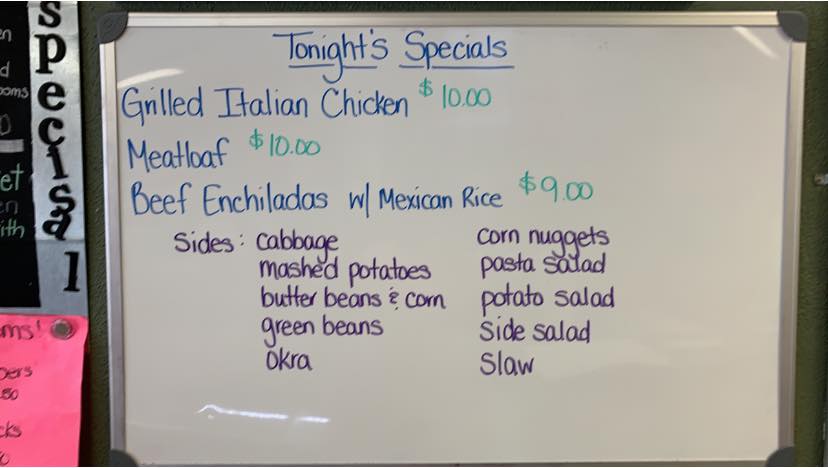 Tonight's Specials
Grilled Italian Chicken $10.00
Meatloaf $10.00
Beef Enchiladas w/ Mexican Rice $9.00
Sides: cabbage
mashed potatoes
butter beans & corn
green beans
okra
corn nuggets
pasta salad
potato salad
side salad
slaw
specisal